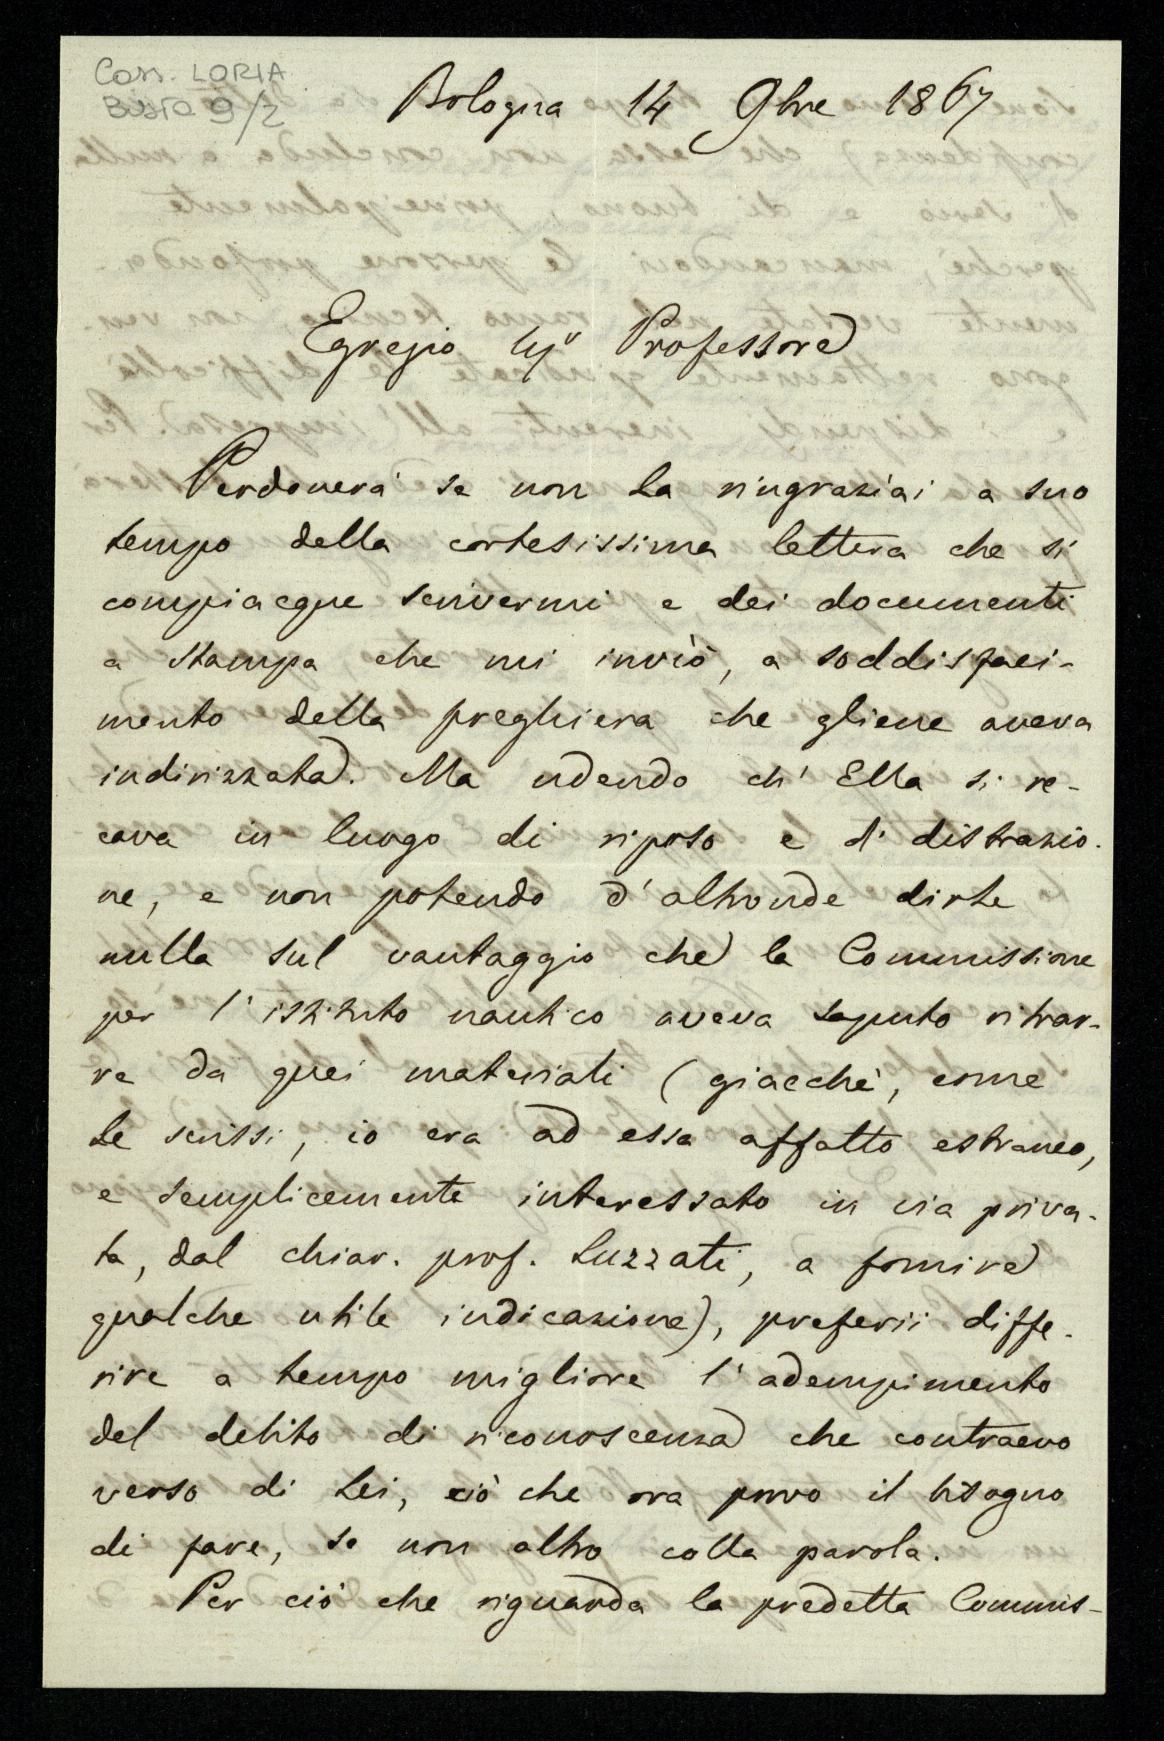 Corr. LORIA
Busta 9/2
Bologna 14 9bre 1867
Egregio Sigr Professore
Perdonerà se non La ringraziai a suo
tempo della cortesissima lettera che si
compiacque scrivermi e dei documenti
a stampa che mi inviò, a soddisfaci-
mento della preghiera che gliene aveva
indirizzata. Ma udendo ch' Ella si re-
cava in luogo di riposo e di distrazio-
ne, e non potendo d'altronde dirle
nulla sul vantaggio che la Commissione
per l'istituto nautico aveva saputo ritrar-
re da quei materiali (giacchè, come
Le scrissi, io era ad essa affatto estraneo,
e semplicemente interessato in via priva-
ta, dal chiar. prof. Luzzati, a fornire
qualche utile indicazione), preferii diffe-
rire a tempo migliore l'adempimento
del debito di riconoscenza che contraevo
verso di Lei, ciò che ora provo il bisogno
di fare, se non altro colla parola.
Per ciò che riguarda la predetta Commis-